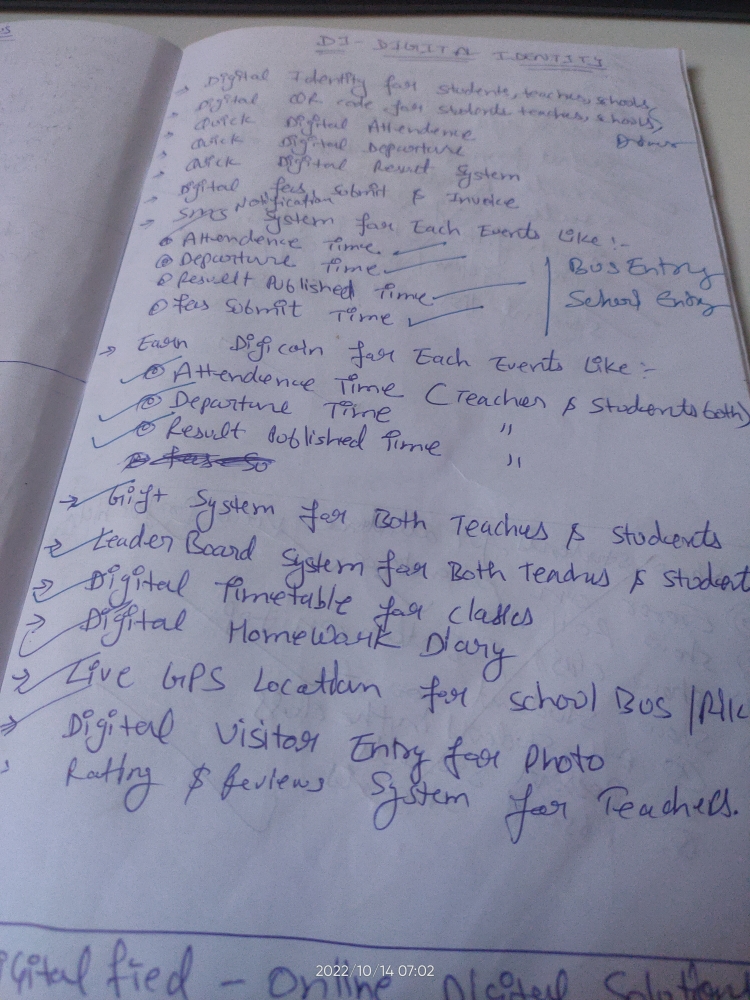 DI - DIGITAL IDENTITY
→ Digital Identity for students, teachers, schools,
Digital QR code for students teaches, schools,
Driver
Quick Digital Attendence
Quick Digital Departure
Quick Digital Result System
→ Digital fees submit & Invoice
→ SMS Notification System for Each Events Like :-
Attendence Time.
Departure Time
Result Published Time
fees Submit Time
BUS Entry
School Entry
→ Earn Digicoin for Each Events Like :-
Attendence Time (Teacher & Students both)
Departure Time "
Result Published Time "
→ Gift System for Both Teachers & Students
→ Leader Board System for Both Teachers & Student
→ Digital Timetable for classes
→ Digital HomeWork Diary
→ Live GPS Location for school Bus /
→ Digital Visitor Entry for Photo
→ Rating & Reviews System for Teachers.
Digital fied - Online Digital Solution
2022/10/14 07:02